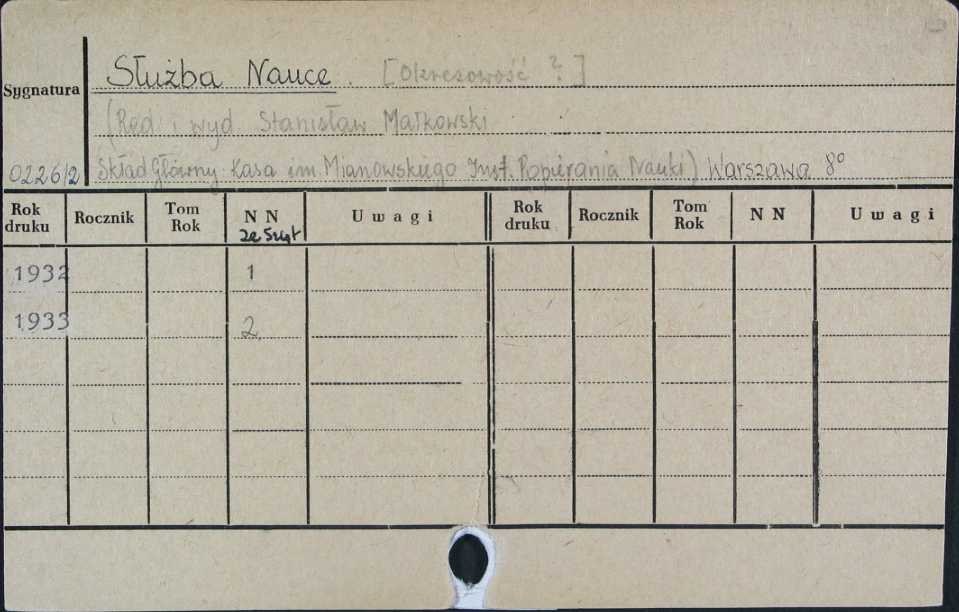 Służba Nauce. [Okresowość ?]
Sygnatura
(Red. i wyd. Stanisław Małkowski
02262 Skład Główny Kasa im. Mianowskiego Inst. Popierania Nauki) Warszawa 8°
Rok druku Rocznik Tom Rok NN Uwagi Rok druku Rocznik Tom Rok NN Uwagi
zeszyt
1932 1
1933 2